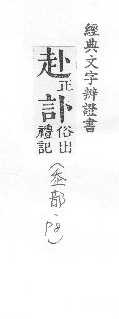 經典文字辨證書
赴正
訃俗出禮記
（走部·P8）